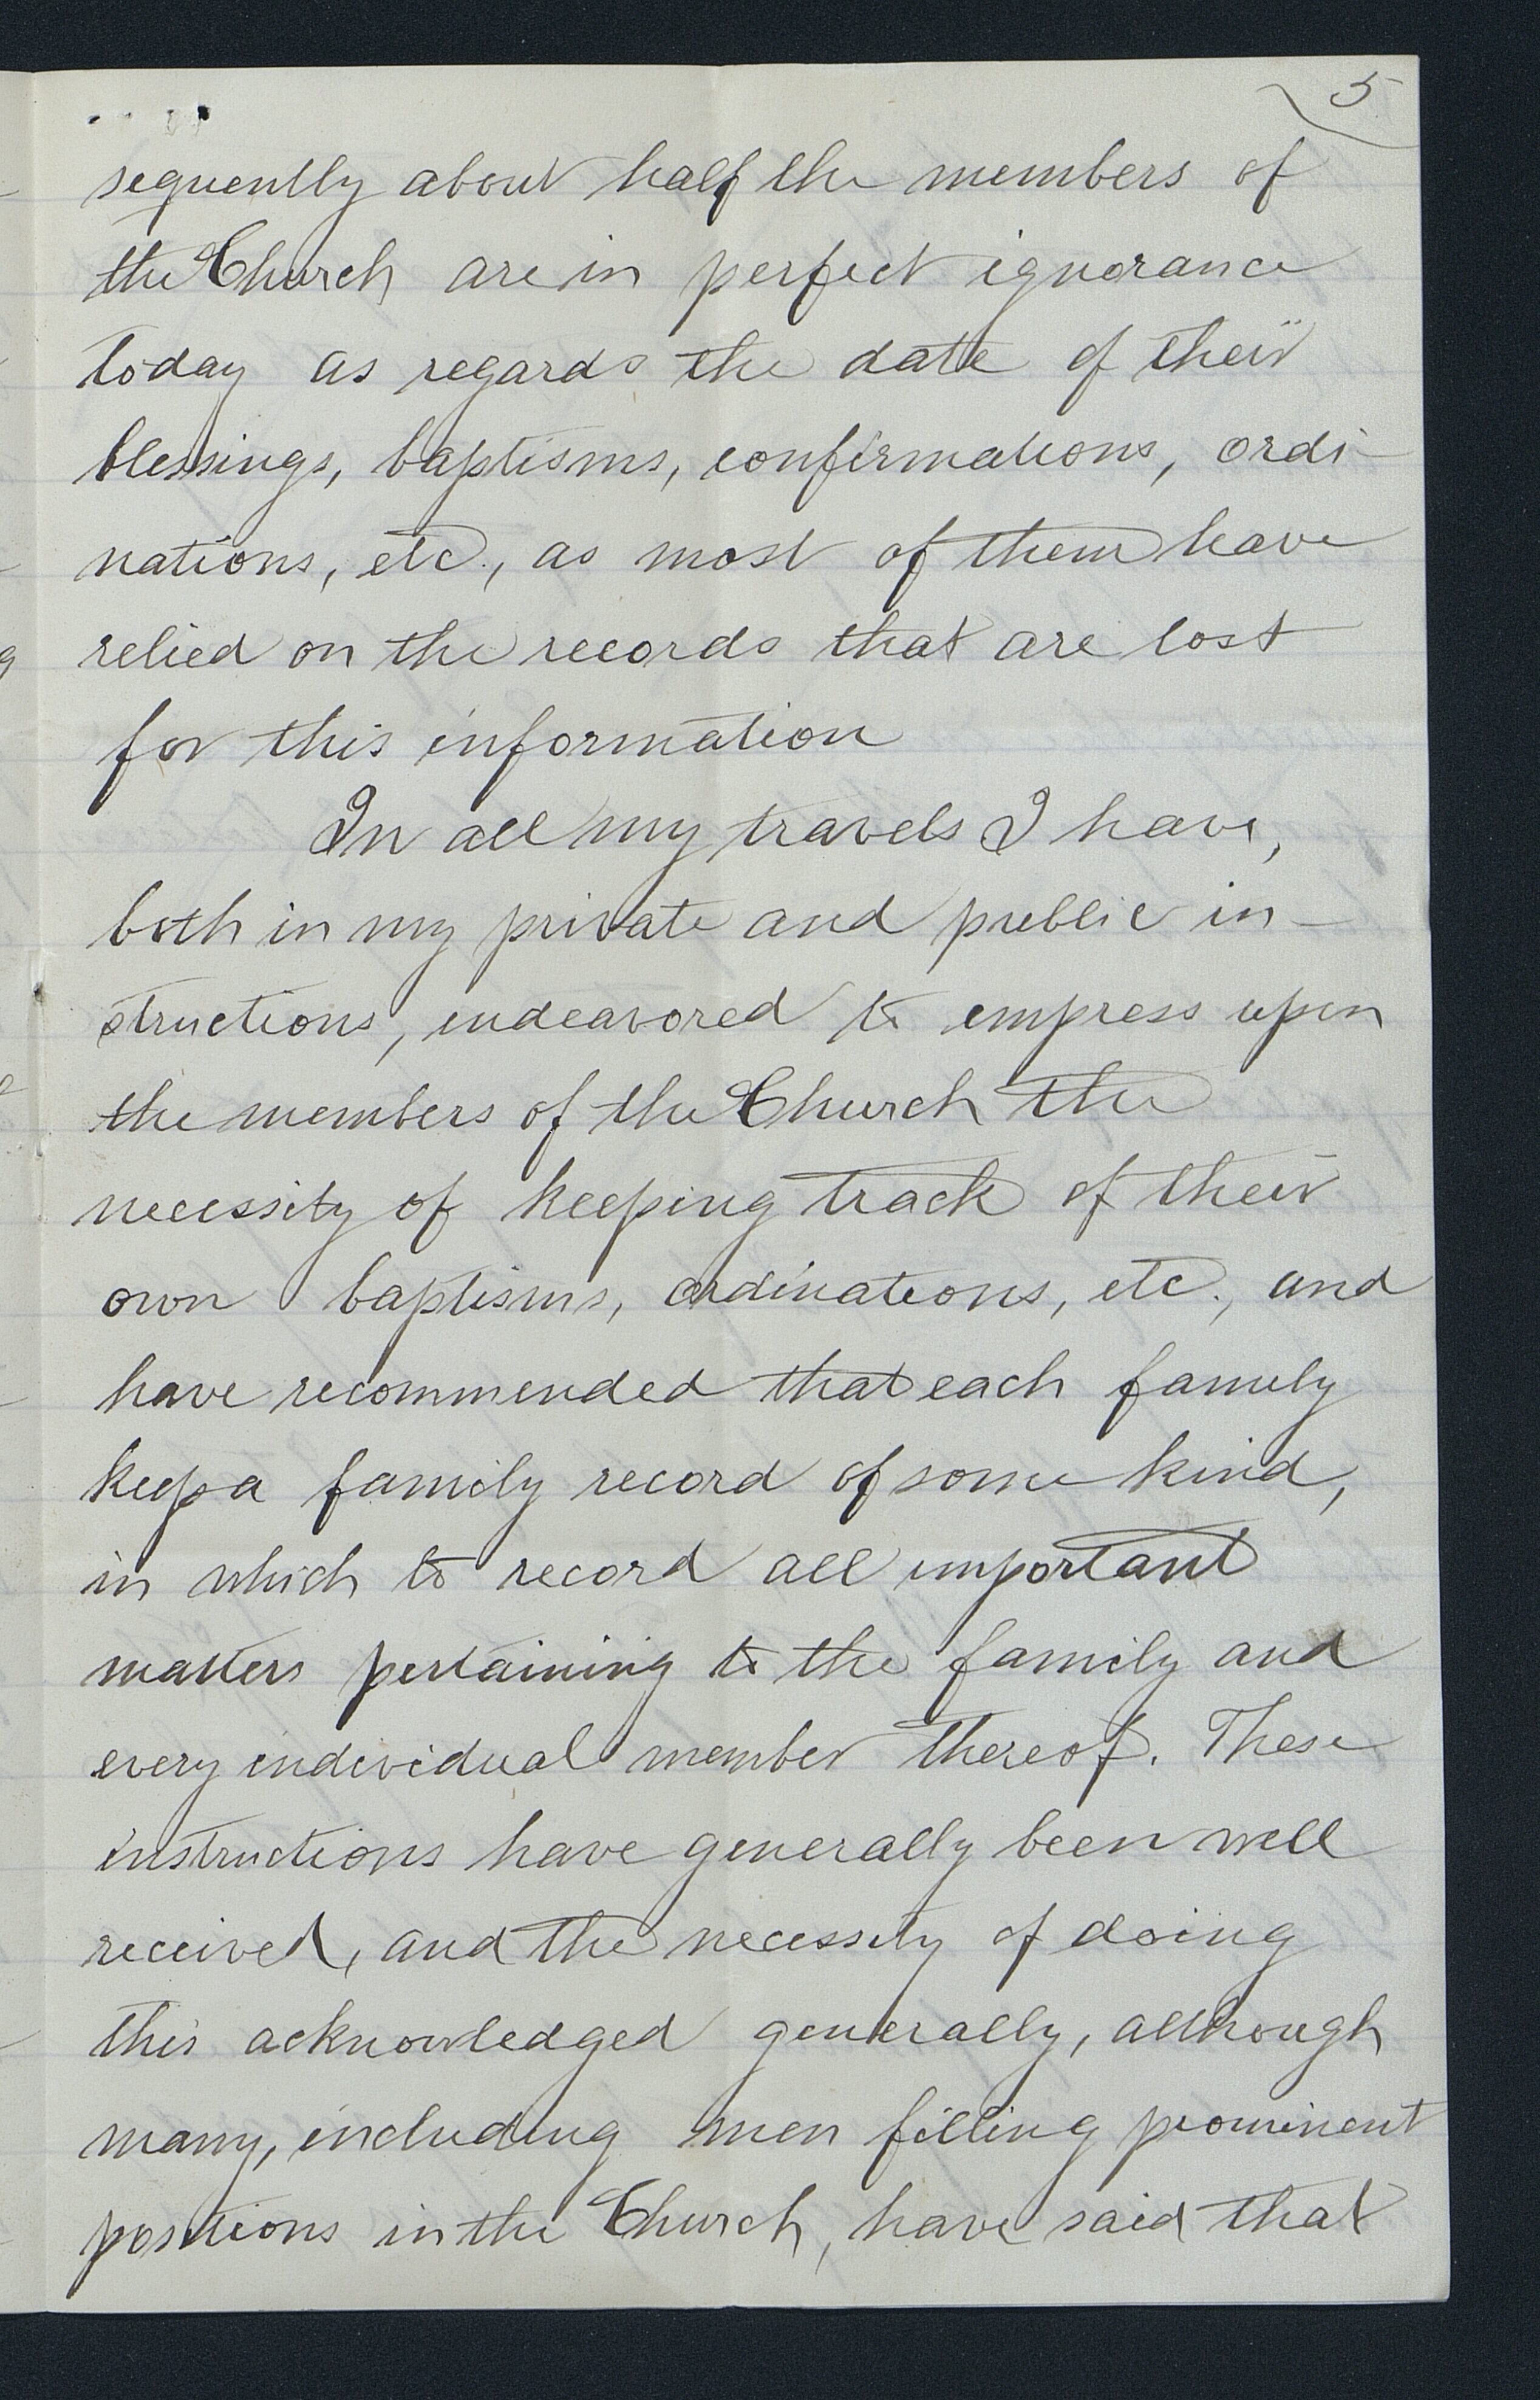 5
sequently about half the members of
the Church are in perfect ignorance
today as regards the date of their
blessings, baptisms, confirmations, ordi-
nations, etc., as most of them have
relied on the records that are lost
for this information
In all my travels I have,
both in my private and public in-
structions, endeavored to impress upon
the members of the Church the
necessity of keeping track of their
own baptisms, ordinations, etc., and
have recommended that each family
keep a family record of some kind,
in which to record all important
matters pertaining to the family and
every individual member thereof. These
instructions have generally been well
received, and the necessity of doing
this acknowledged generally, although
many, including men filling prominent
positions in the Church, have said that